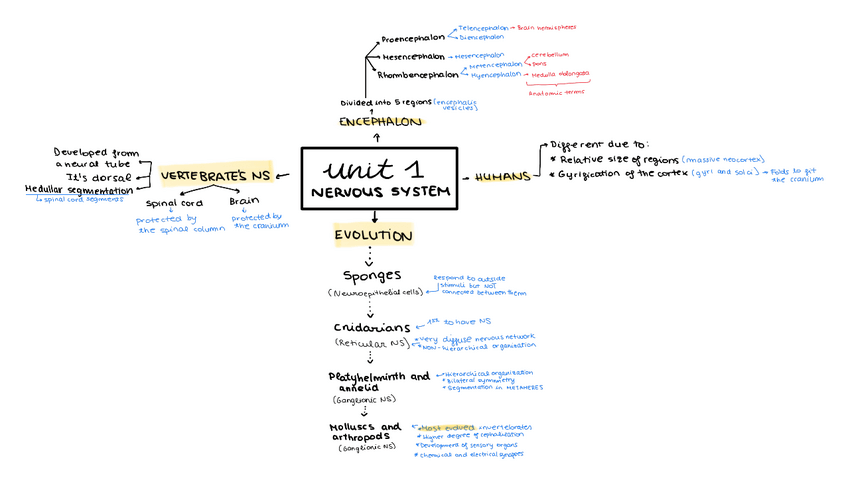 Proencephalon
Telencephalon → Brain hemispheres
Diencephalon
Mesencephalon → Mesencephalon
Rhombencephalon
Metencephalon
cerebellum
Pons
Myencephalon → Medulla oblongata
Anatomic terms
Divided into 5 regions (encephalic vesicles)
ENCEPHALON
unit 1
NERVOUS SYSTEM
VERTEBRATE'S NS
Developed from
a neural tube
It's dorsal
Medullar segmentation
↳ spinal cord segments
Spinal cord
protected by
the spinal column
Brain
protected by
the cranium
HUMANS
Different due to:
* Relative size of regions (massive neocortex)
* Gyrification of the cortex (gyri and solci) → Folds to fit
the cranium
EVOLUTION
Sponges
(Neuroepithelial cells)
Respond to outside
stimuli but NOT
connected between them
Cnidarians
(Reticular NS)
1st to have NS
* very diffuse nervous network
* NON-hierarchical organization
Platyhelminth and
annelid
(Ganglionic NS)
* Hierarchical organization
* Bilateral symmetry
* Segmentation in METAMERES
Molluscs and
arthropods
(Ganglionic NS)
* Most evolved invertebrates
* Higher degree of cephalization
* Development of sensory organs
* Chemical and electrical synapses